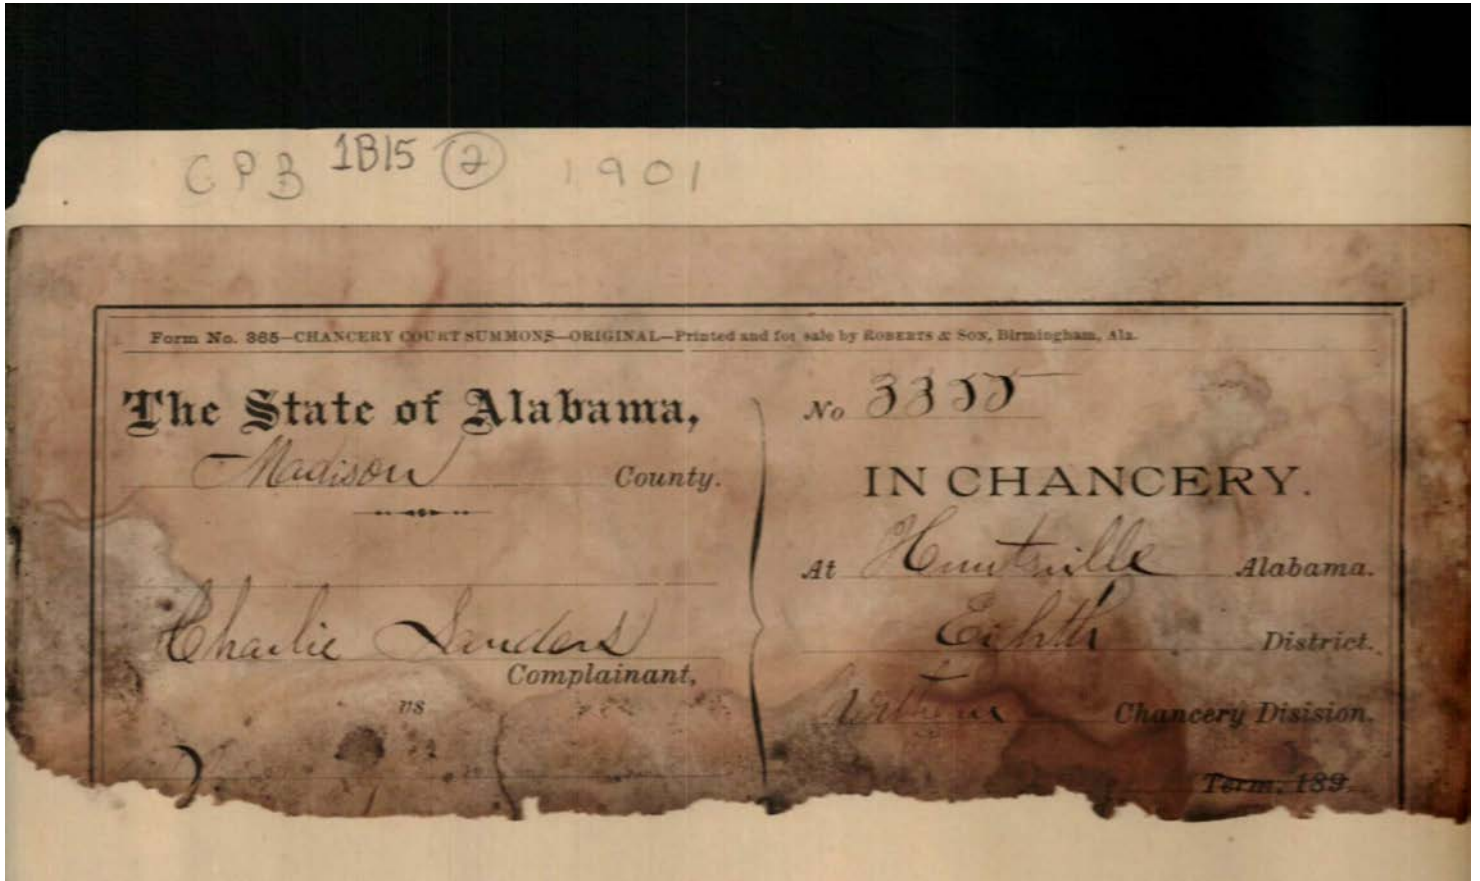 CPB 1B15 2 1901
Form No. 365—CHANCERY COURT SUMMONS—ORIGINAL—Printed and for sale by ROBERTS & SON, Birmingham, Ala.
The State of Alabama,
Madison County.
Charlie Sanders
Complainant,
vs
No 3355
IN CHANCERY.
At Huntsville Alabama.
Eighth District.
Chancery Disision.
Term, 189